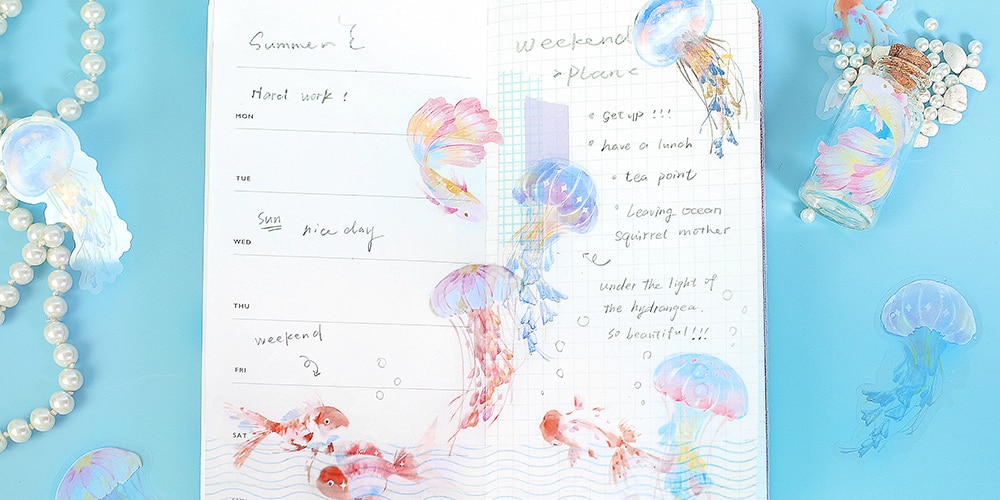 Summer
Hard work !
MON
TUE
Sun nice day
WED
THU
weekend
FRI
SAT
weekend
>Plan<
• Get up !!!
• have a lunch
• tea point
• Leaving ocean
squirrel mother
under the light of
the hydrangea.
so beautiful!!!